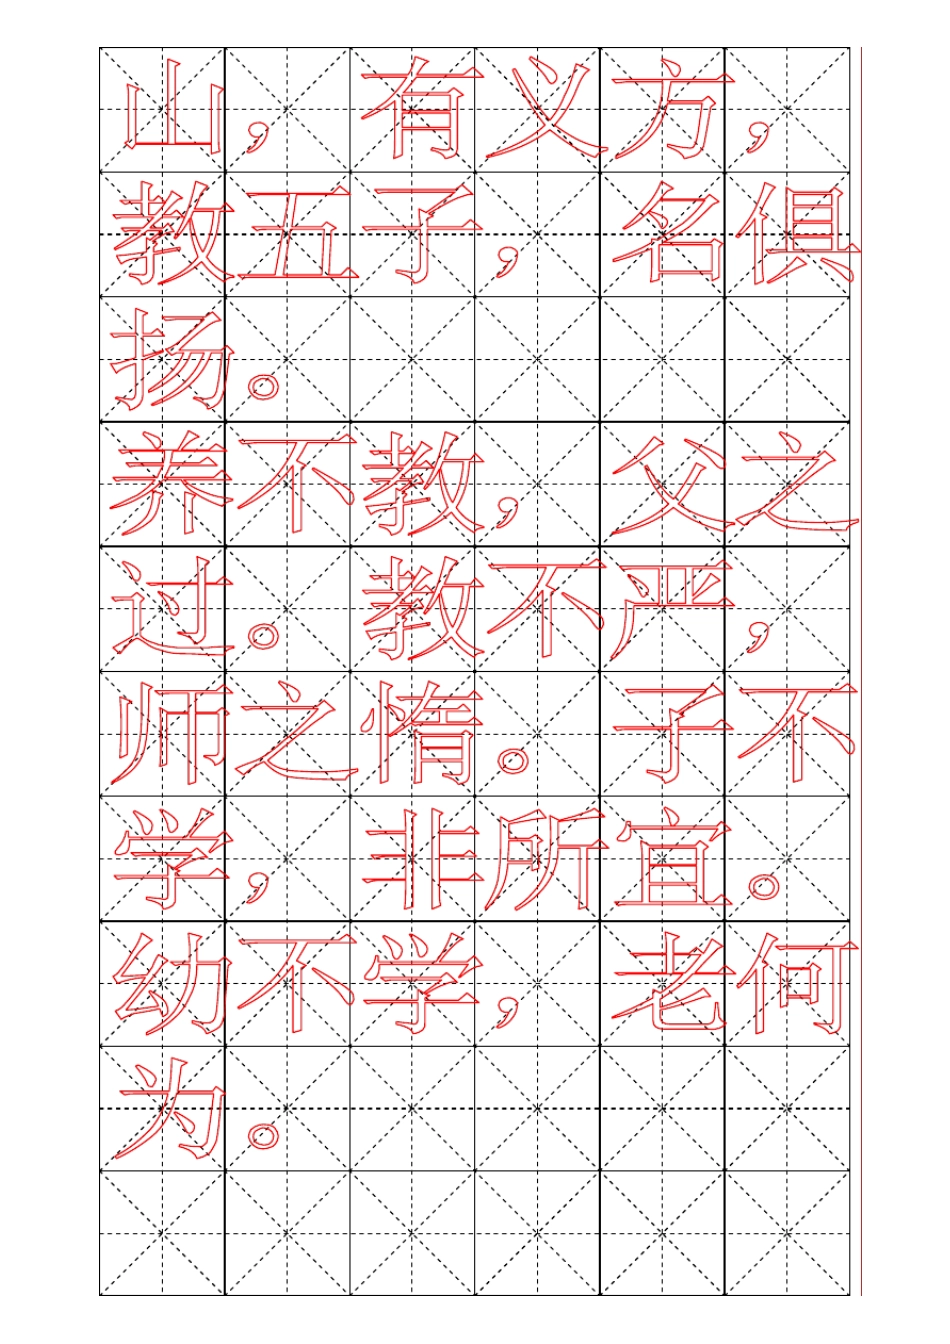 山，有义方，
教五子，名俱
扬。
养不教，父之
过。教不严，
师之惰。子不
学，非所宜。
幼不学，老何
为。